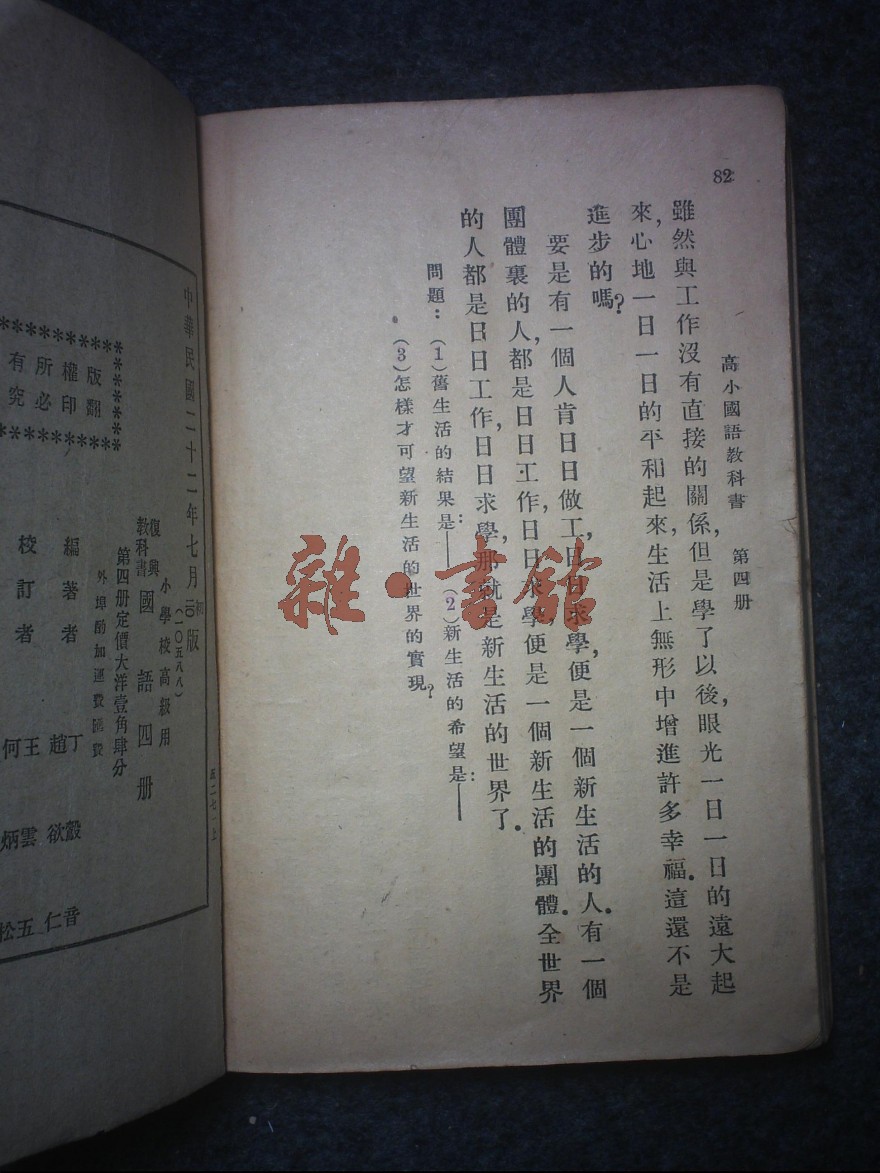 82
高小國語教科書　第四册
雖然與工作沒有直接的關係,但是學了以後,眼光一日一日的遠大起
來,心地一日一日的平和起來,生活上無形中增進許多幸福。這還不是
進步的嗎?
要是有一個人肯日日做工,日日求學,便是一個新生活的人。有一個
團體裏的人,都是日日工作,日日求學,便是一個新生活的團體。全世界
的人都是日日工作,日日求學,那就是新生活的世界了。
問題:(1)舊生活的結果是:——(2)新生活的希望是:——
(3)怎樣才可望新生活的世界的實現?
雜·書館
五二七一上
中華民國二十二年七月初版
(一〇五八八)
小學校高級用
復興教科書 國語四册
第四册定價大洋壹角肆分
外埠酌加運費匯費
編著者 丁𣪊音 趙欲仁
校訂者 王雲五 何炳松
版權所有
翻印必究